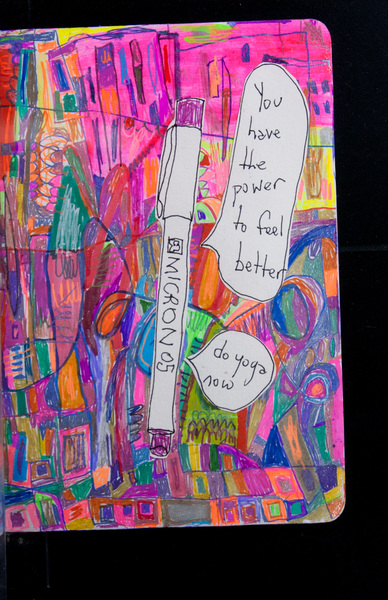 You
have
the
power
to feel
better
MICRON 05
do yoga
now